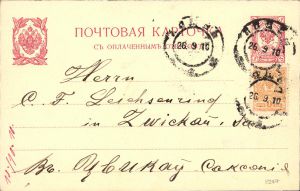 ПОЧТОВАЯ КАРТОЧКА
СЪ ОПЛАЧЕННЫМЪ
26.9.10
26.9.10
26.9.10
Herrn
C. F. Leichsenring
in Zwickau,
Въ Цвикау Саксонія